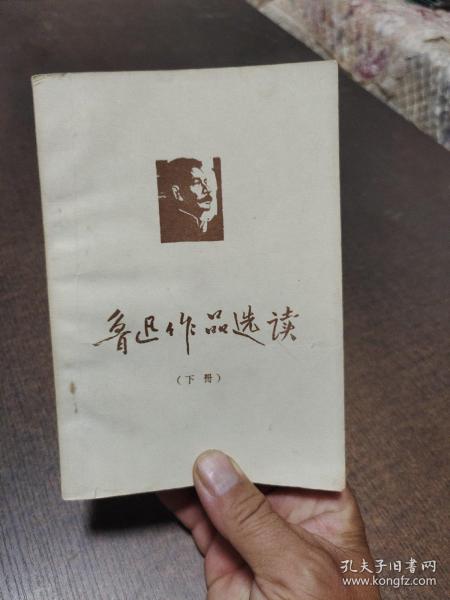 鲁迅作品选读
（下册）
孔夫子旧书网
www.kongfz.com